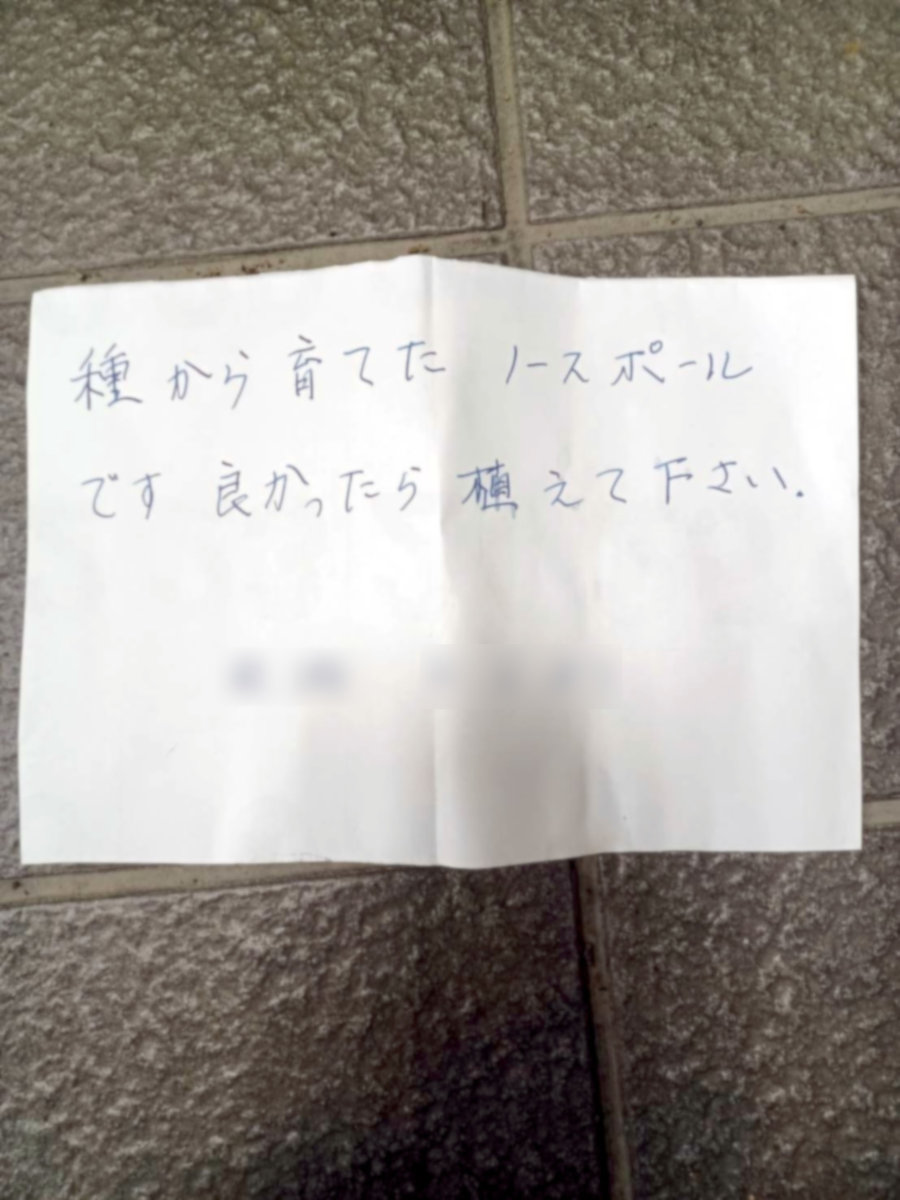 種から育てた ノースポール
です 良かったら 植えて下さい.